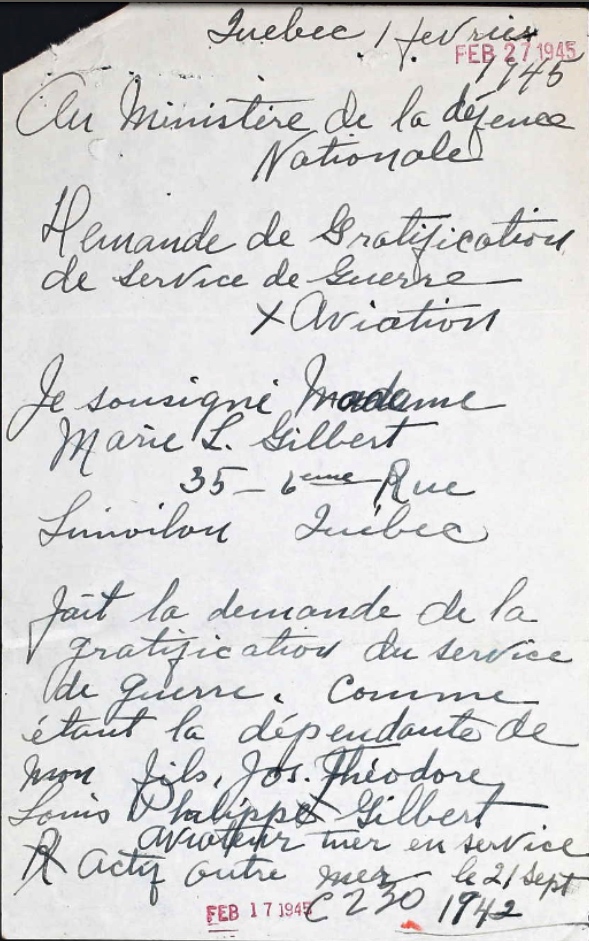 Quebec 1 fevrier
FEB 27 1945
1945
Au Ministère de la défence
Nationale
Demande de Gratification
de service de Guerre
x Aviation
Je sousigné Madame
Marie L. Gilbert
35 – 6eme Rue
Limoilou Québec
fait la demande de la
gratification du service
de guerre. Comme
étant la dépendante de
mon fils, Jos. Théodore
Louis Philippe Gilbert
aviateur tuer en service
actif outre mer le 21 Sept
FEB 17 1945 C 230 1942